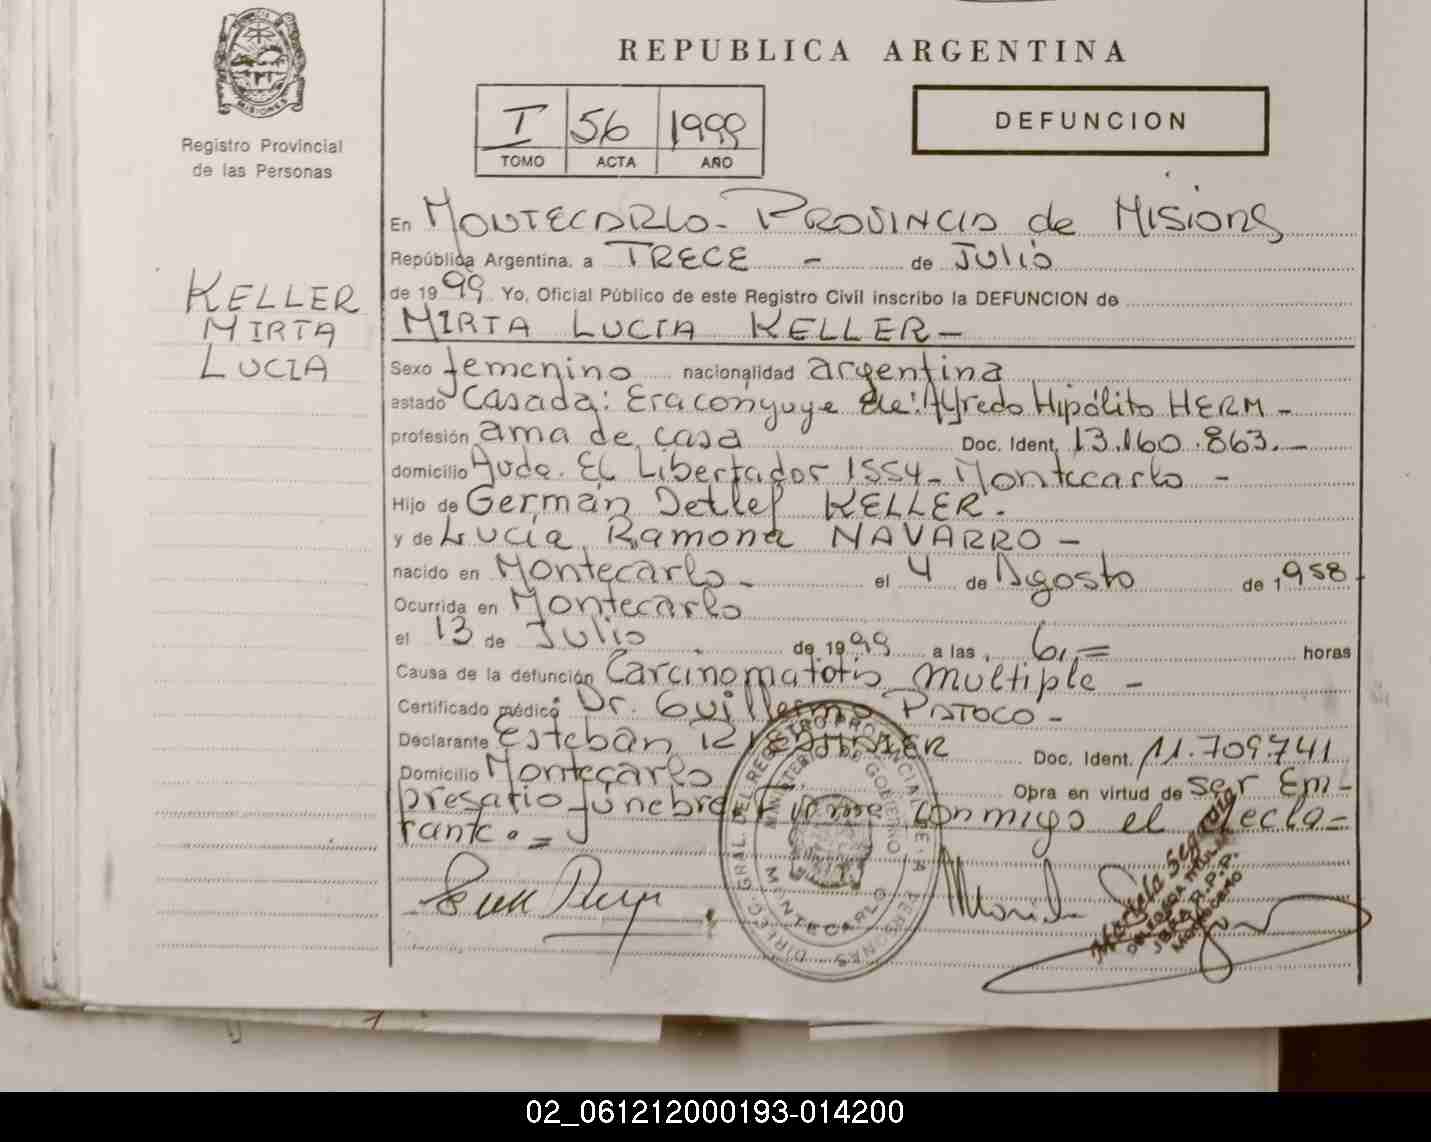 REPUBLICA ARGENTINA
MISIONES
Registro Provincial
de las Personas
I 56 1999
TOMO ACTA AÑO
DEFUNCION
KELLER
MIRTA
LUCIA
En MONTECARLO - PROVINCIA de Misiones
República Argentina, a TRECE - de Julio
de 1999 Yo, Oficial Público de este Registro Civil inscribo la DEFUNCION de
MIRTA LUCIA KELLER -
Sexo femenino nacionalidad argentina
estado Casada: Era conyuge de: Alfredo Hipólito HERM -
profesión ama de casa Doc. Ident. 13.160.863.-
domicilio Avda. El Libertador 1554 - Montecarlo -
Hijo de Germán Detlef KELLER.
y de Lucía Ramona NAVARRO -
nacido en Montecarlo - el 4 de Agosto de 1958
Ocurrida en Montecarlo
el 13 de Julio de 1999 a las 6,= horas
Causa de la defunción Carcinomatotis multiple -
Certificado médico Dr. Guillermo PATOCO -
Declarante Esteban Doc. Ident. 11.709741
Domicilio Montecarlo Obra en virtud de ser Em-
presario fúnebre. Firma conmigo el decla-
rante. =
DIREC. GRAL. DEL REGISTRO PROVINCIAL DE LA PERSONAS
MINISTERIO DE GOBIERNO
MONTECARLO
02_061212000193-014200